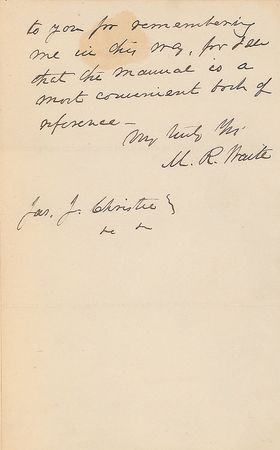 to you for remembering
me in this way, for I see
that the manual is a
most convenient book of
reference —
Very truly Yrs
M. R. Waite
Jas. J. Christie }